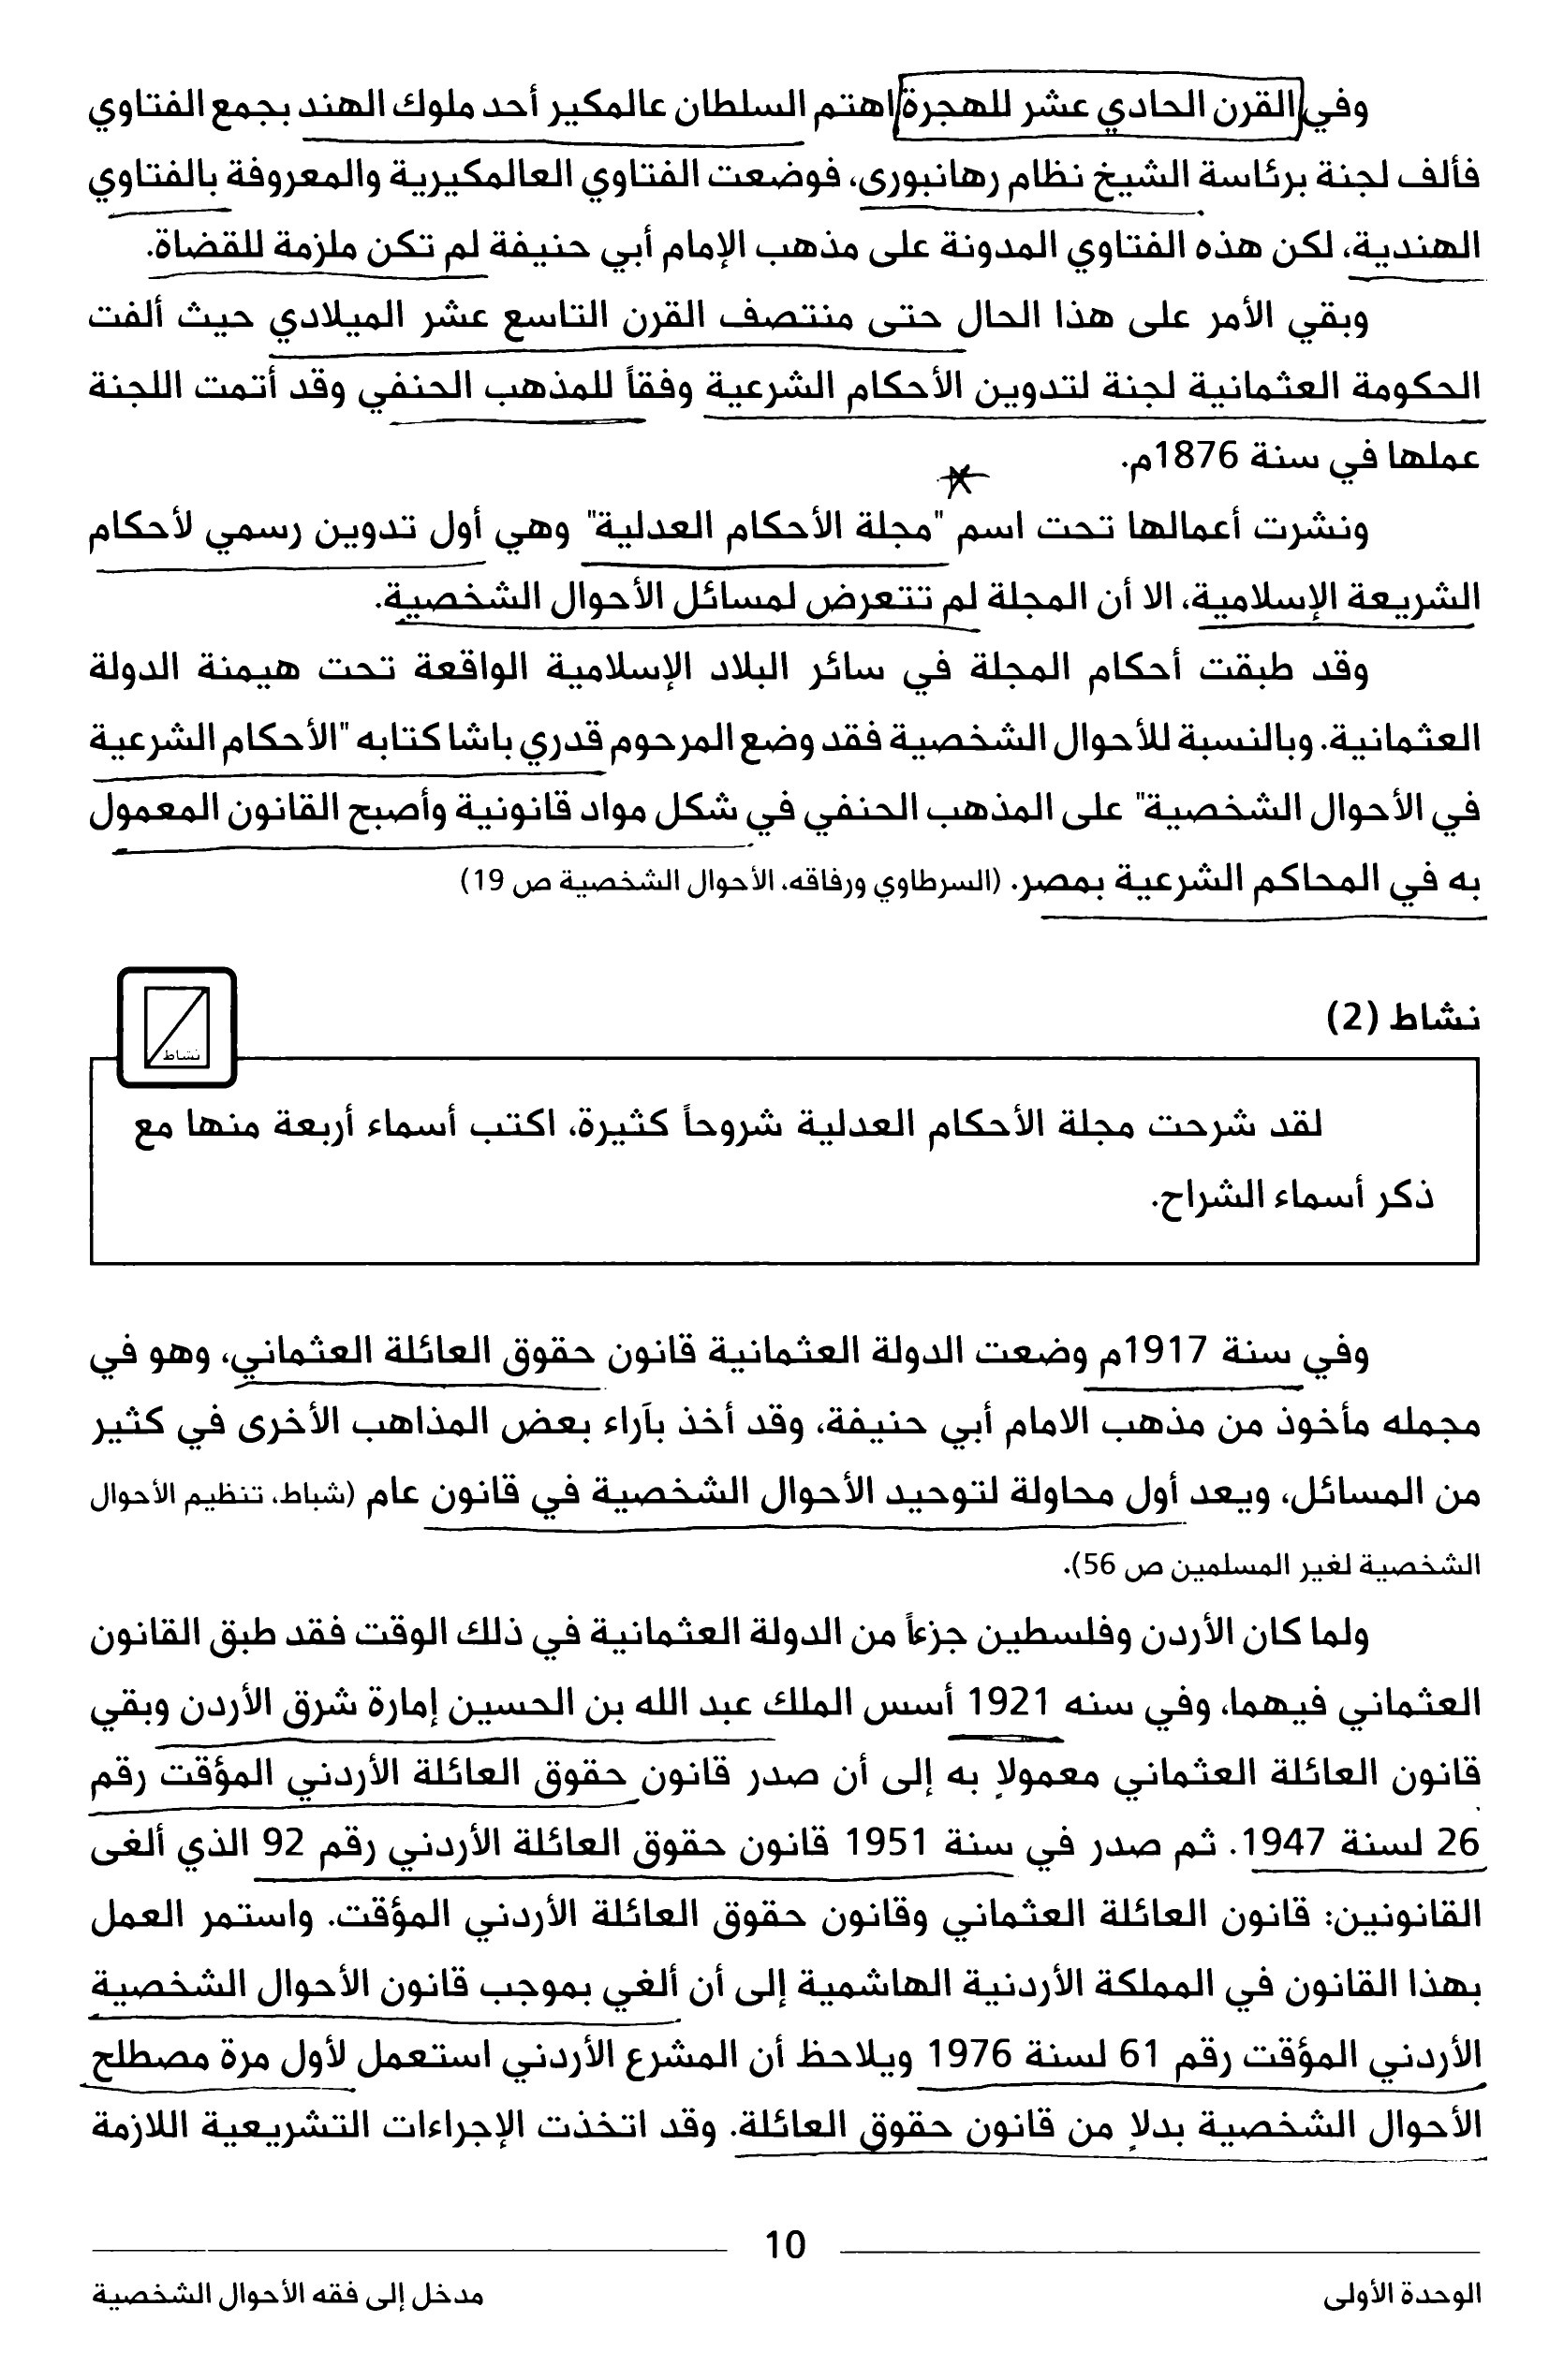 وفي القرن الحادي عشر للهجرة اهتم السلطان عالمكير أحد ملوك الهند بجمع الفتاوي
فألف لجنة برئاسة الشيخ نظام رهانبورى، فوضعت الفتاوي العالمكيرية والمعروفة بالفتاوي
الهندية، لكن هذه الفتاوي المدونة على مذهب الإمام أبي حنيفة لم تكن ملزمة للقضاة.
وبقي الأمر على هذا الحال حتى منتصف القرن التاسع عشر الميلادي حيث ألفت
الحكومة العثمانية لجنة لتدوين الأحكام الشرعية وفقاً للمذهب الحنفي وقد أتمت اللجنة
عملها في سنة 1876م.
ونشرت أعمالها تحت اسم "مجلة الأحكام العدلية" وهي أول تدوين رسمي لأحكام
الشريعة الإسلامية، الا أن المجلة لم تتعرض لمسائل الأحوال الشخصية.
وقد طبقت أحكام المجلة في سائر البلاد الإسلامية الواقعة تحت هيمنة الدولة
العثمانية. وبالنسبة للأحوال الشخصية فقد وضع المرحوم قدري باشا كتابه "الأحكام الشرعية
في الأحوال الشخصية" على المذهب الحنفي في شكل مواد قانونية وأصبح القانون المعمول
به في المحاكم الشرعية بمصر. (السرطاوي ورفاقه، الأحوال الشخصية ص 19)
نشاط (2)
نشاط
لقد شرحت مجلة الأحكام العدلية شروحاً كثيرة، اكتب أسماء أربعة منها مع
ذكر أسماء الشراح.
وفي سنة 1917م وضعت الدولة العثمانية قانون حقوق العائلة العثماني، وهو في
مجمله مأخوذ من مذهب الامام أبي حنيفة، وقد أخذ بآراء بعض المذاهب الأخرى في كثير
من المسائل، ويعد أول محاولة لتوحيد الأحوال الشخصية في قانون عام (شباط، تنظيم الأحوال
الشخصية لغير المسلمين ص 56).
ولما كان الأردن وفلسطين جزءاً من الدولة العثمانية في ذلك الوقت فقد طبق القانون
العثماني فيهما، وفي سنه 1921 أسس الملك عبد الله بن الحسين إمارة شرق الأردن وبقي
قانون العائلة العثماني معمولاٍ به إلى أن صدر قانون حقوق العائلة الأردني المؤقت رقم
26 لسنة 1947. ثم صدر في سنة 1951 قانون حقوق العائلة الأردني رقم 92 الذي ألغى
القانونين: قانون العائلة العثماني وقانون حقوق العائلة الأردني المؤقت. واستمر العمل
بهذا القانون في المملكة الأردنية الهاشمية إلى أن ألغي بموجب قانون الأحوال الشخصية
الأردني المؤقت رقم 61 لسنة 1976 ويلاحظ أن المشرع الأردني استعمل لأول مرة مصطلح
الأحوال الشخصية بدلاٍ من قانون حقوق العائلة. وقد اتخذت الإجراءات التشريعية اللازمة
10
الوحدة الأولى
مدخل إلى فقه الأحوال الشخصية